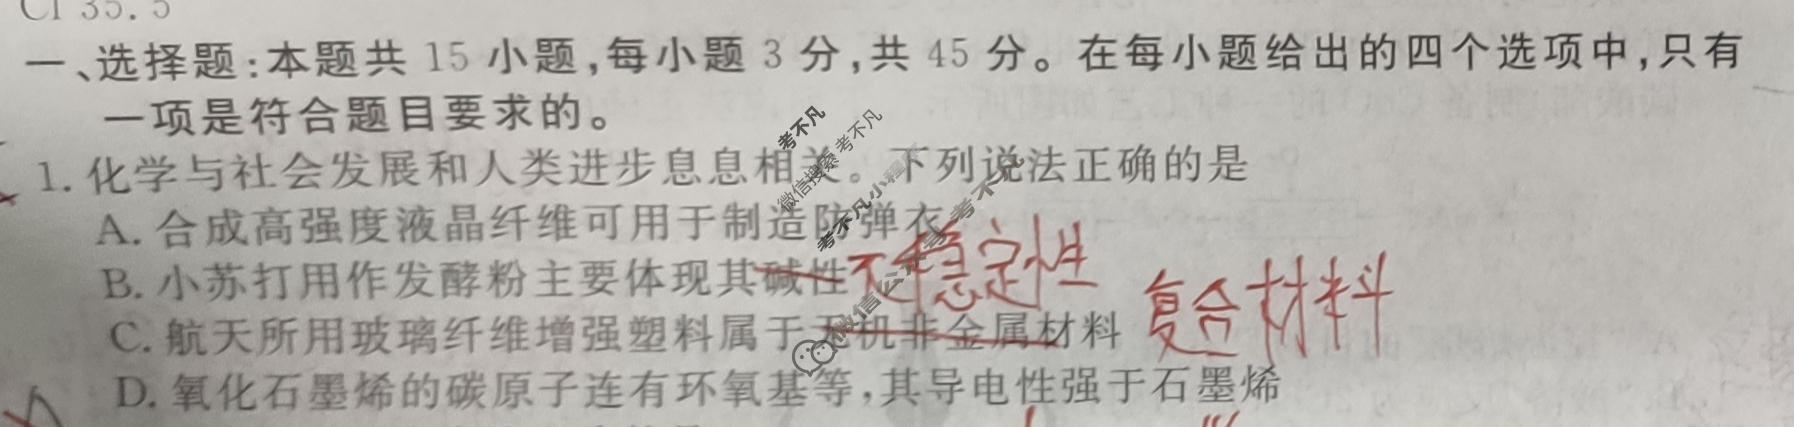 Cl 35.5
一、选择题:本题共 15 小题,每小题 3 分,共 45 分。在每小题给出的四个选项中,只有
一项是符合题目要求的。
1. 化学与社会发展和人类进步息息相关。下列说法正确的是
A. 合成高强度液晶纤维可用于制造防弹衣
B. 小苏打用作发酵粉主要体现其碱性 不稳定性
C. 航天所用玻璃纤维增强塑料属于无机非金属材料 复合材料
D. 氧化石墨烯的碳原子连有环氧基等,其导电性强于石墨烯
考不凡
微信搜索 考不凡
考不凡小程序
微信公众号 考不凡